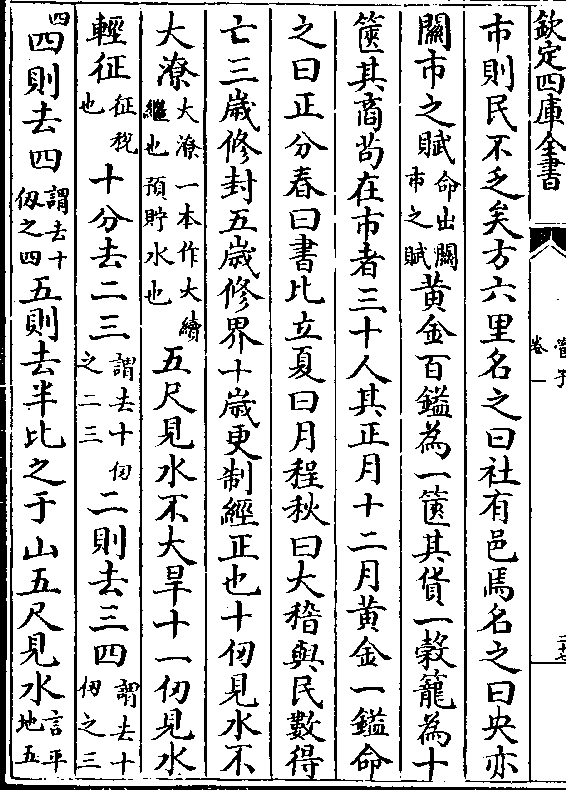 欽定四庫全書
管子
卷一
市則民不乏矣方六里名之曰社有邑焉名之曰央亦
關市之賦命出關市之賦黃金百鎰為一篋其貨一穀籠為十
篋其商苟在市者三十人其正月十二月黃金一鎰命
之曰正分春曰書比立夏曰月程秋曰大稽與民數得
亡三歲修封五歲修界十歲更制經正也十仞見水不
大潦大潦一本作大續繼也預貯水也五尺見水不大旱十一仞見水
輕征征稅也十分去二三謂去十仞之二三二則去三四謂去十仞之三
四四則去四謂去十仞之四五則去半比之于山五尺見水言平地五